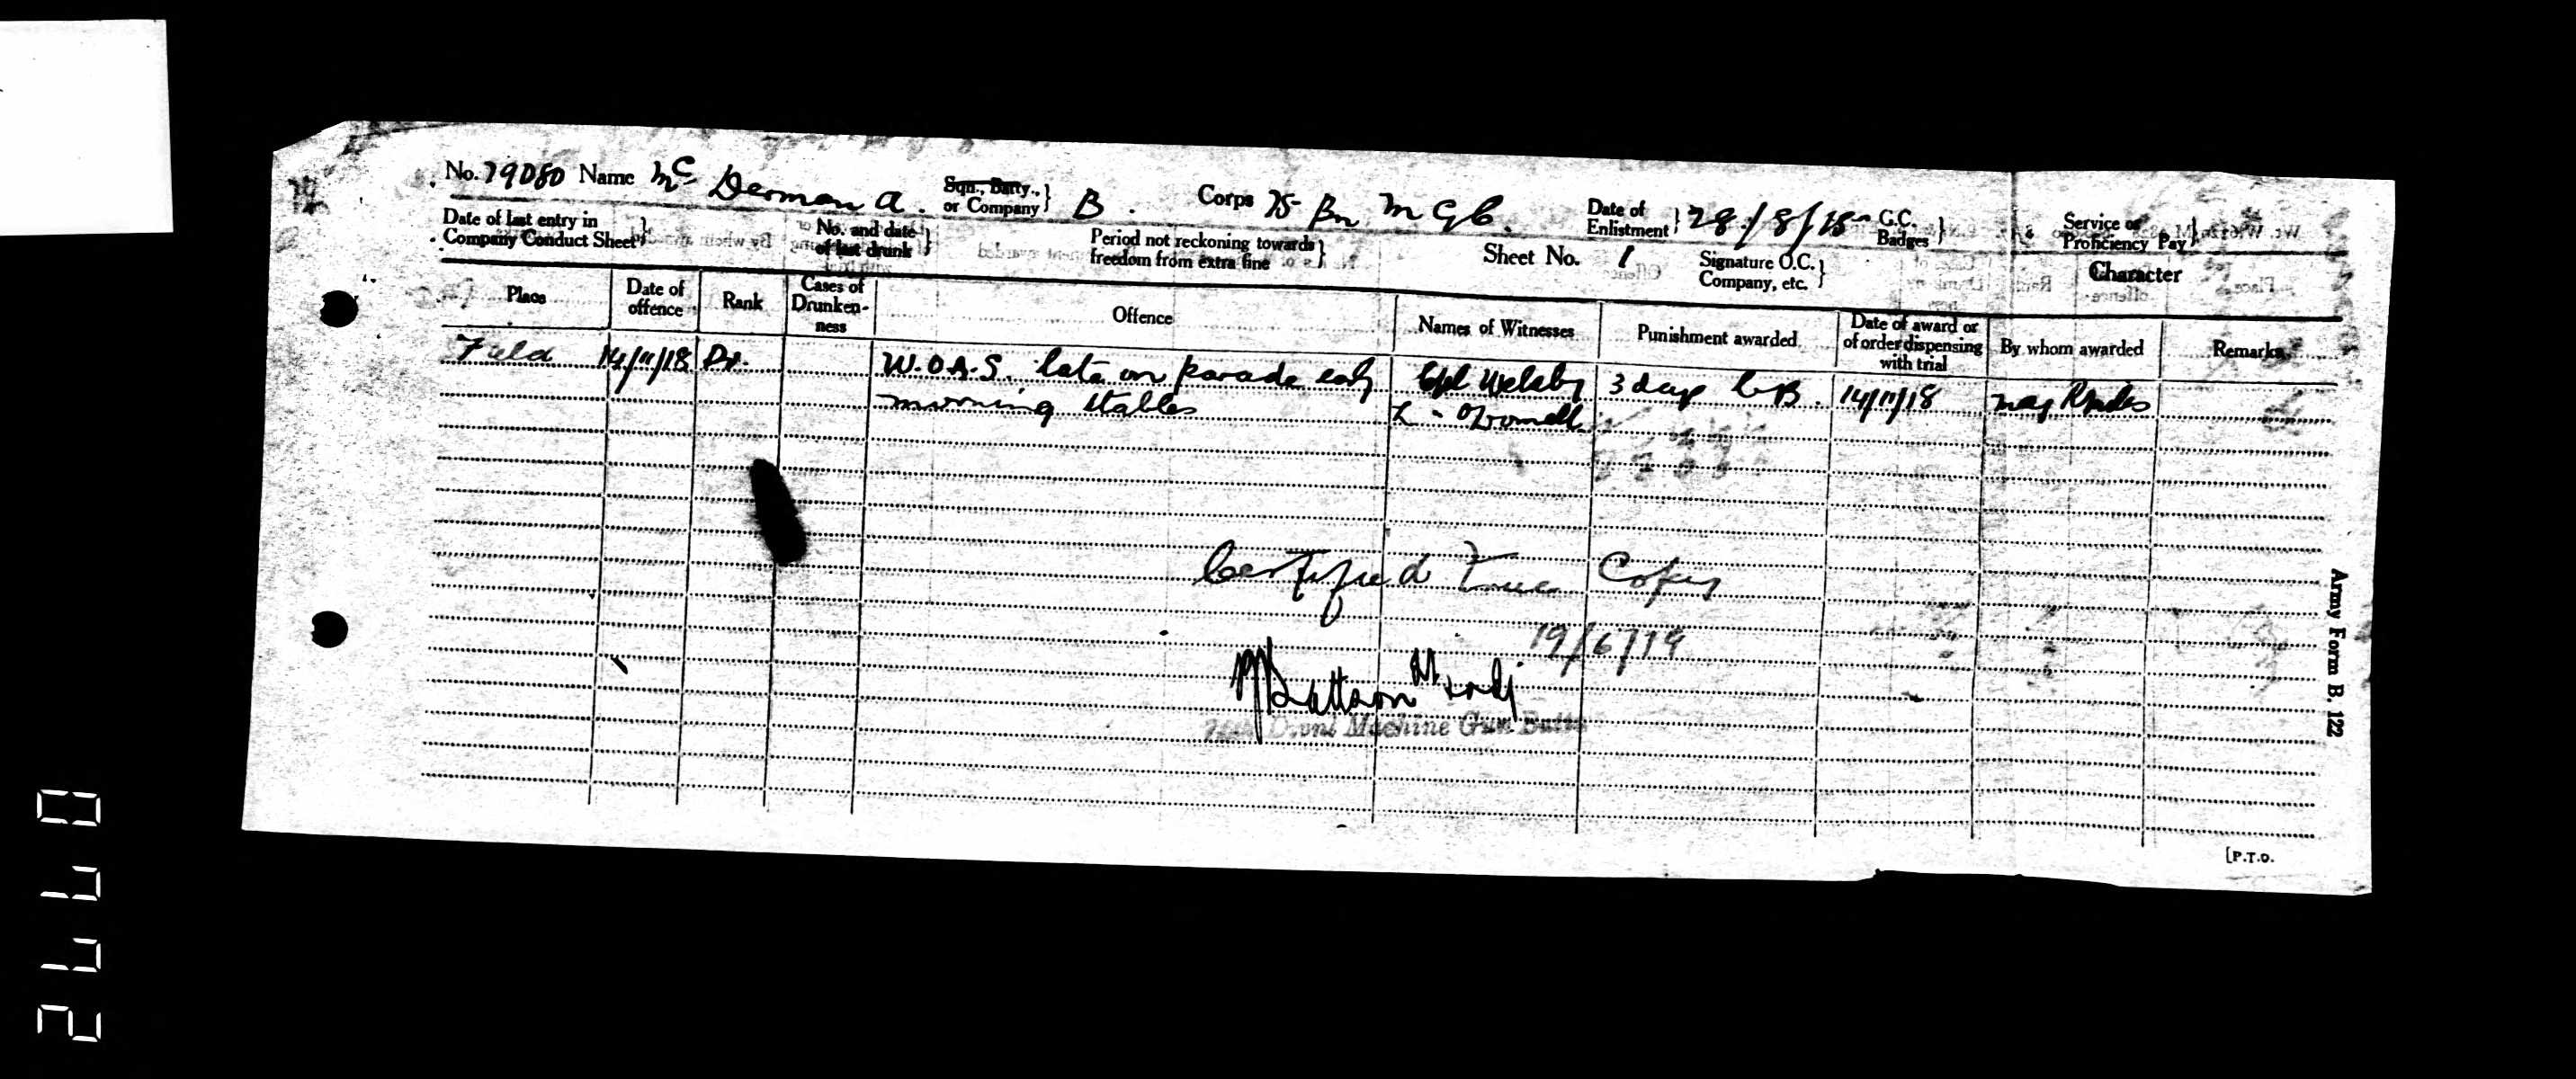 No. 79080 Name Mc Dermon A. Sqn., Batty., or Company} B. Corps 25 Bn M G C. Date of Enlistment} 28/8/15 G.C. Badges} Service or Proficiency Pay}
Date of last entry in Company Conduct Sheet} No. and date of last drunk} Period not reckoning towards freedom from extra fine} Sheet No. 1 Signature O.C. Company, etc.} Character
Place Date of offence Rank Cases of Drunkenness Offence Names of Witnesses Punishment awarded Date of award or of order dispensing with trial By whom awarded Remarks
Field 14/11/18 Dr. W.O.A.S. late on parade early Cpl Welsby 3 days C.B. 14/11/18 Maj Rhodes
morning stables L - O'Donnell
Certified True Copy
19/6/19
Divnl Machine Gun Battn
Army Form B. 122
[P.T.O.
0772